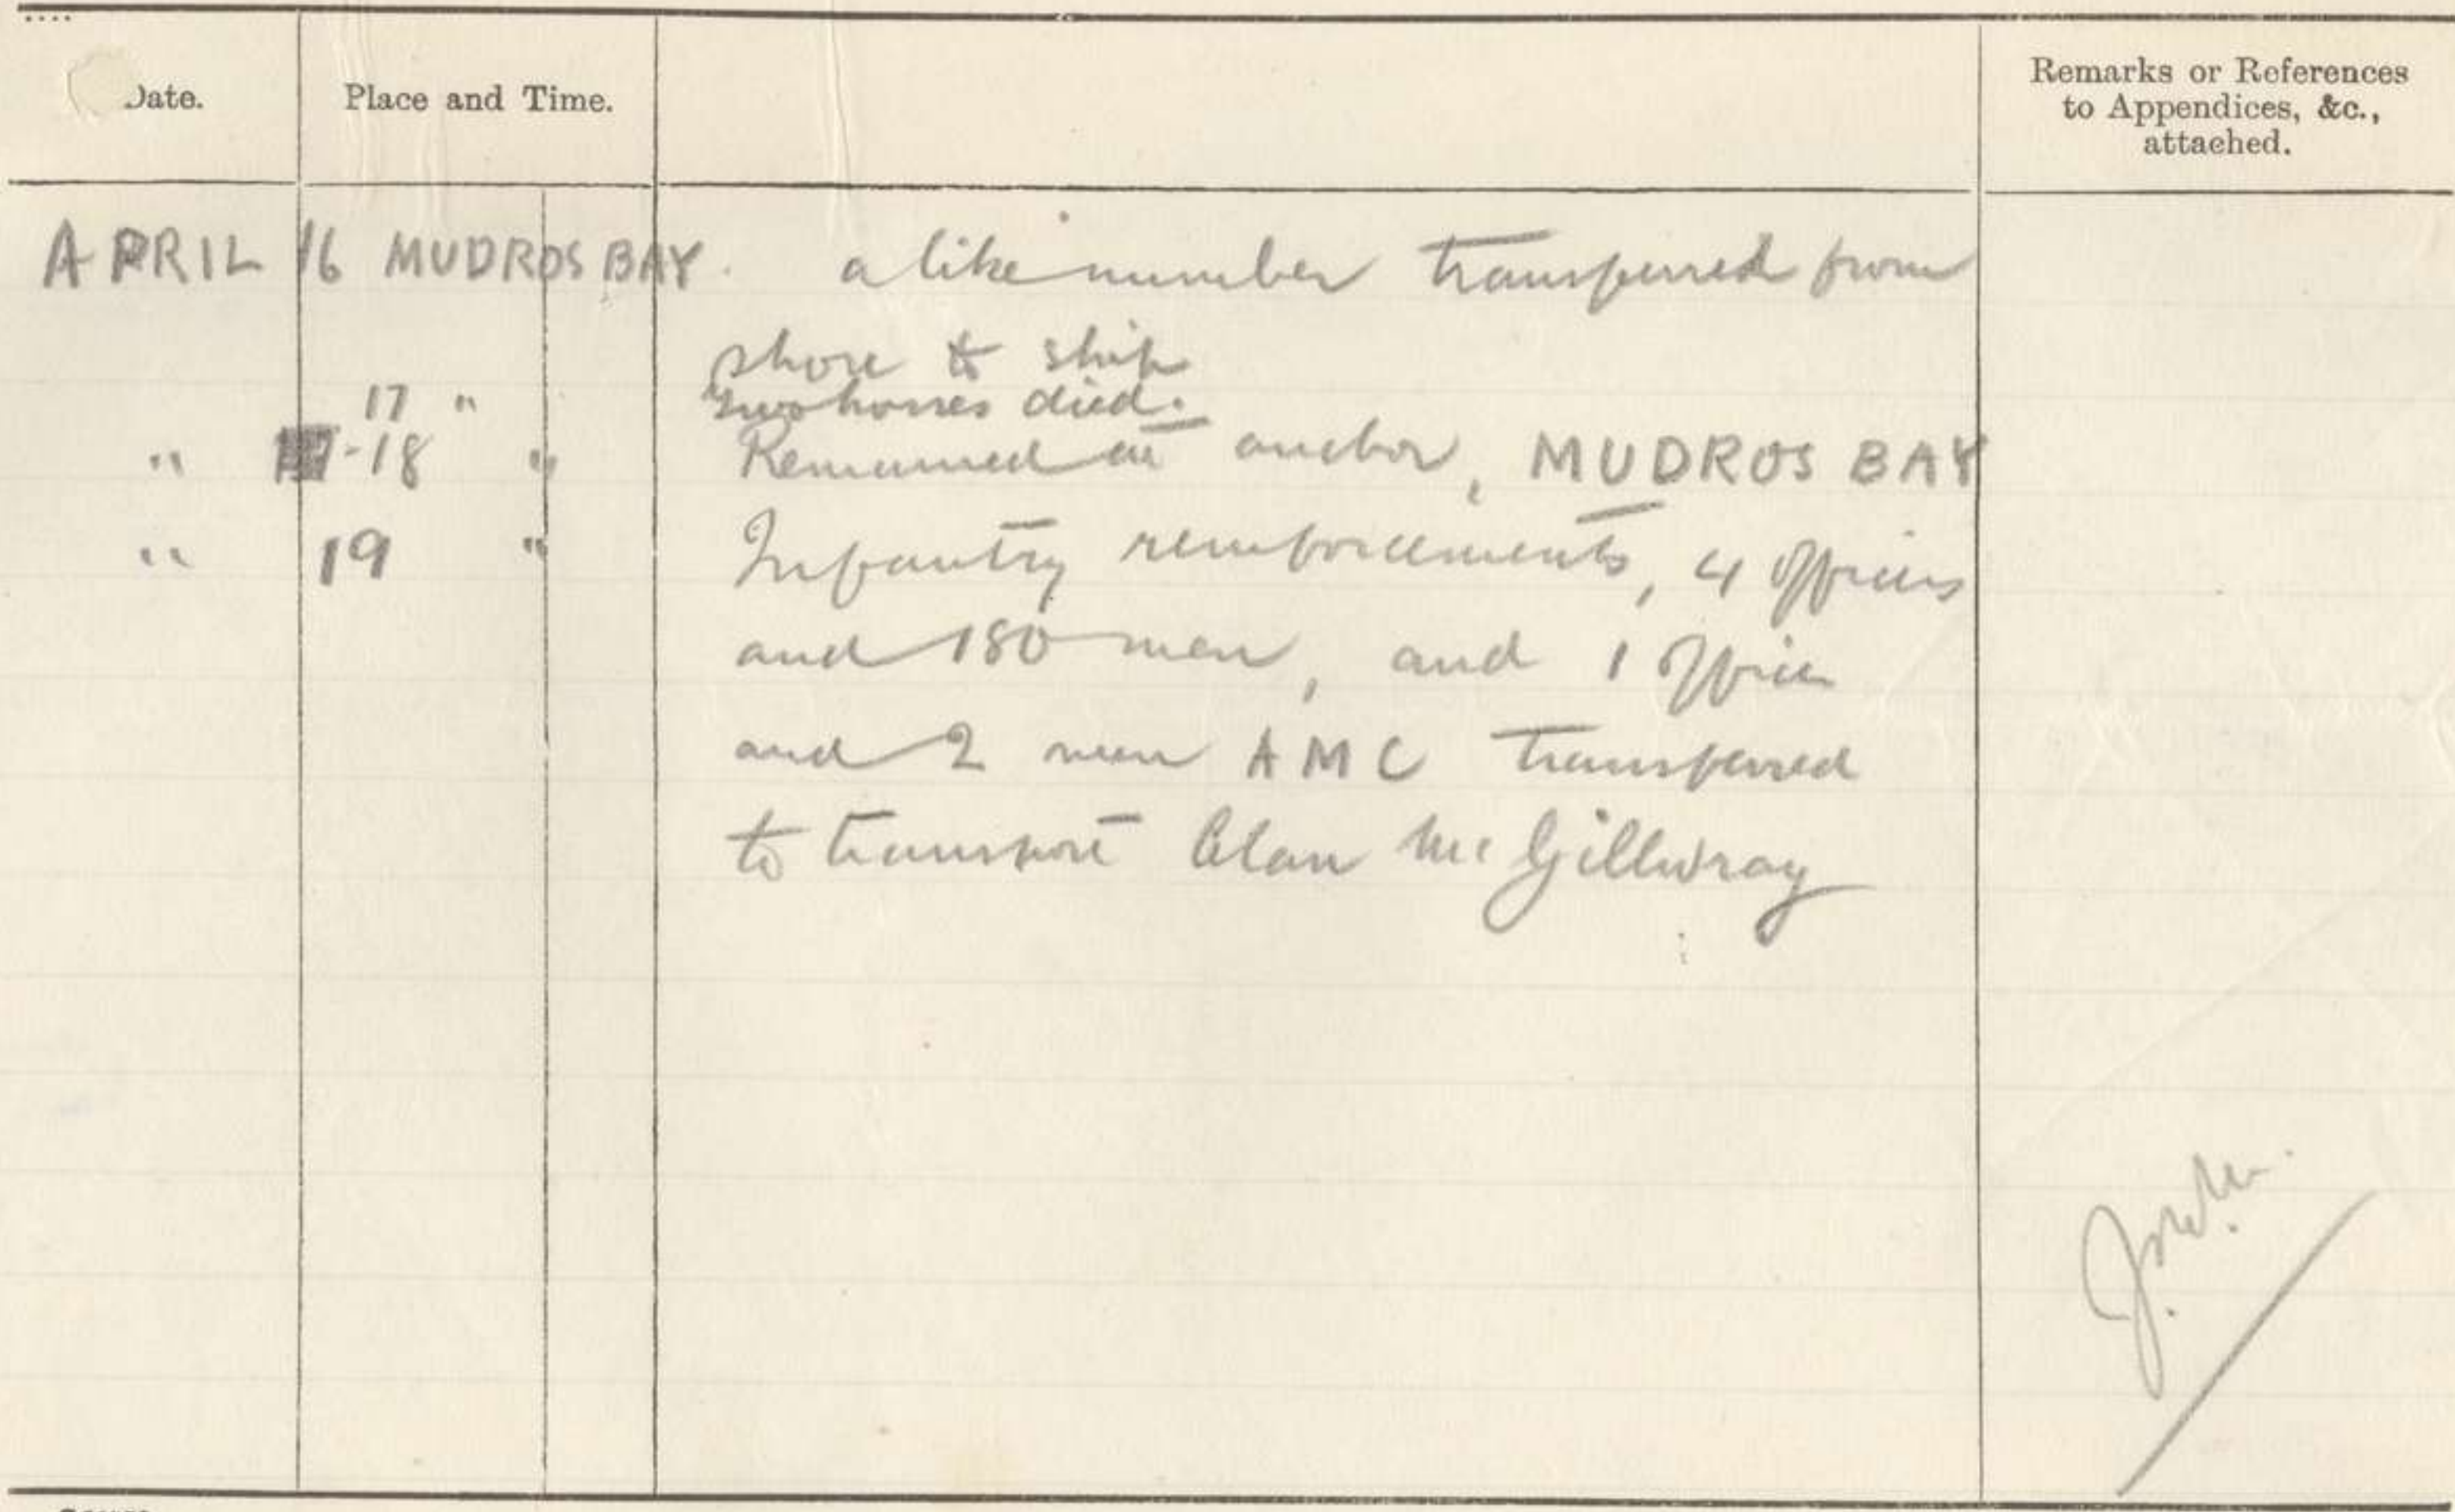 Date. Place and Time. Remarks or References
to Appendices, &c.,
attached.
APRIL 16 MUDROS BAY. a like number transferred from
shore to ship
17 " Two horses died.
" -18 " Remained at anchor, MUDROS BAY
" 19 " Infantry reinforcements, 4 Officers
and 180 men, and 1 Officer
and 2 men AMC transferred
to transport Clan McGillivray